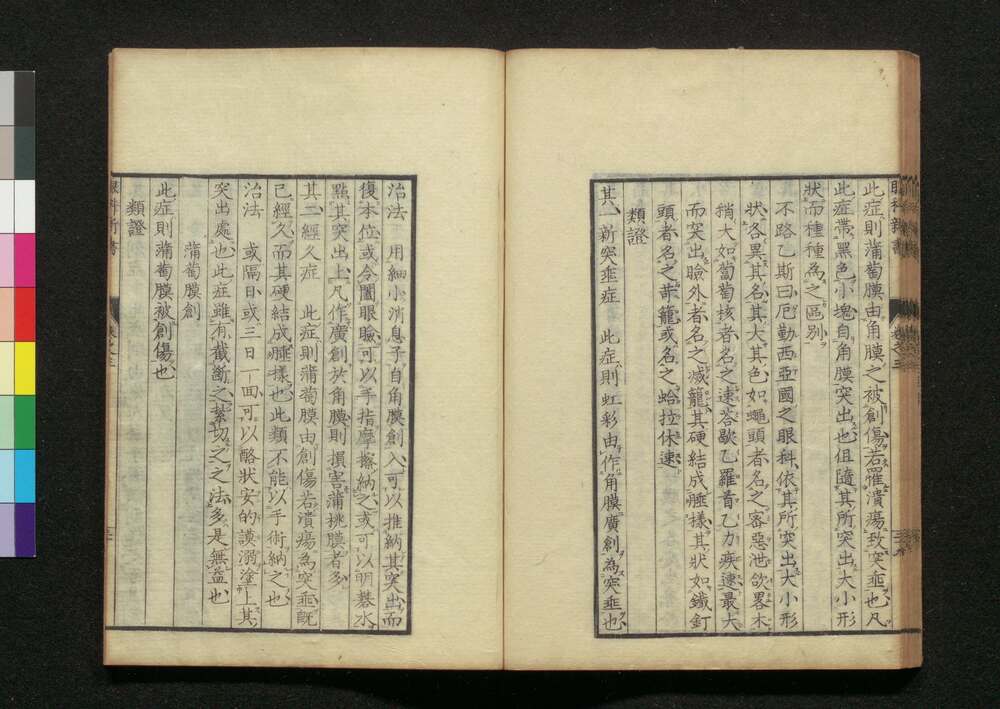 此症則蒲萄膜由角膜之被創傷若罹潰瘍致突垂也凡
此症帶黑色小塊自角膜突出也但隨其所突出大小形
狀而種種為之區別
不路乙斯曰厄勒西亞國之眼科依其所突出大小形
狀各異其名其大其色如蠅頭者名之密惡泄欲畧木
稍大如蔔萄核者名之速荅歇乙羅首乙力疾速最大
而突出瞼外者名之滅籠其硬結成腫樣其狀如鐵釘
頭者名之籠或名之蛤拉休速
類證
其一新突垂症 此症則虹彩由作角膜廣創為突垂也
治法 用細小消息子自角膜創入可以推納其突出而
復本位或令闔眼瞼可以手指摩擦納之或可以明礬水
點其突出上凡作廣創於角膜則損害蒲桃膜者多
其二經久症 此症則蒲萄膜由創傷若潰瘍為突垂既
已經久而其硬結成腫樣也此類不能以手術納之也
治法 或隔日或三日一面可以酪狀安的謨溺塗上其
突出處也此症雖有截斷之紮切之之法多是無益也
蒲萄膜創
此症則蒲萄膜被創傷也
類證
眼科新書